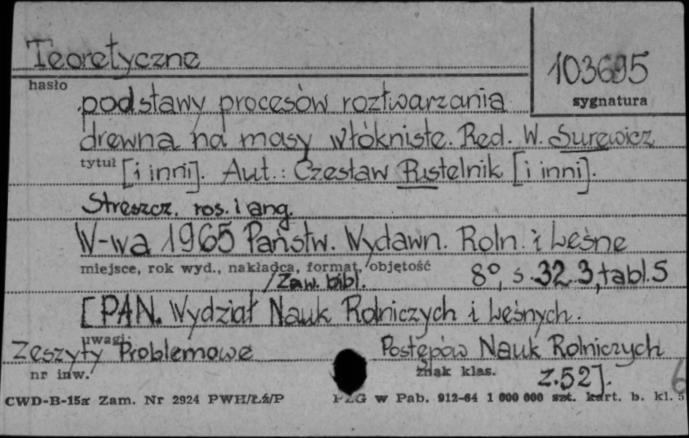 Teoretyczne
103695
hasło
sygnatura
podstawy procesów roztwarzania
drewna na masy włókniste. Red. W. Surewicz
tytuł [i inni]. Aut.: Czesław Pustelnik [i inni].
Streszcz. ros. i ang.
W-wa 1965 Państw. Wydawn. Roln. i Leśne
miejsce, rok wyd., nakładca, format, objętość
/Zaw. bibl. 8°, s. 32.3, tabl. 5
[PAN. Wydział Nauk Rolniczych i Leśnych.
uwagi
Zeszyty Problemowe Postępów Nauk Rolniczych
nr inw. znak klas. z.52]. 6
CWD-B-15x Zam. Nr 2924 PWH/Łź/P PZG w Pab. 912-64 1 000 000 szt. kart. b. kl. 5